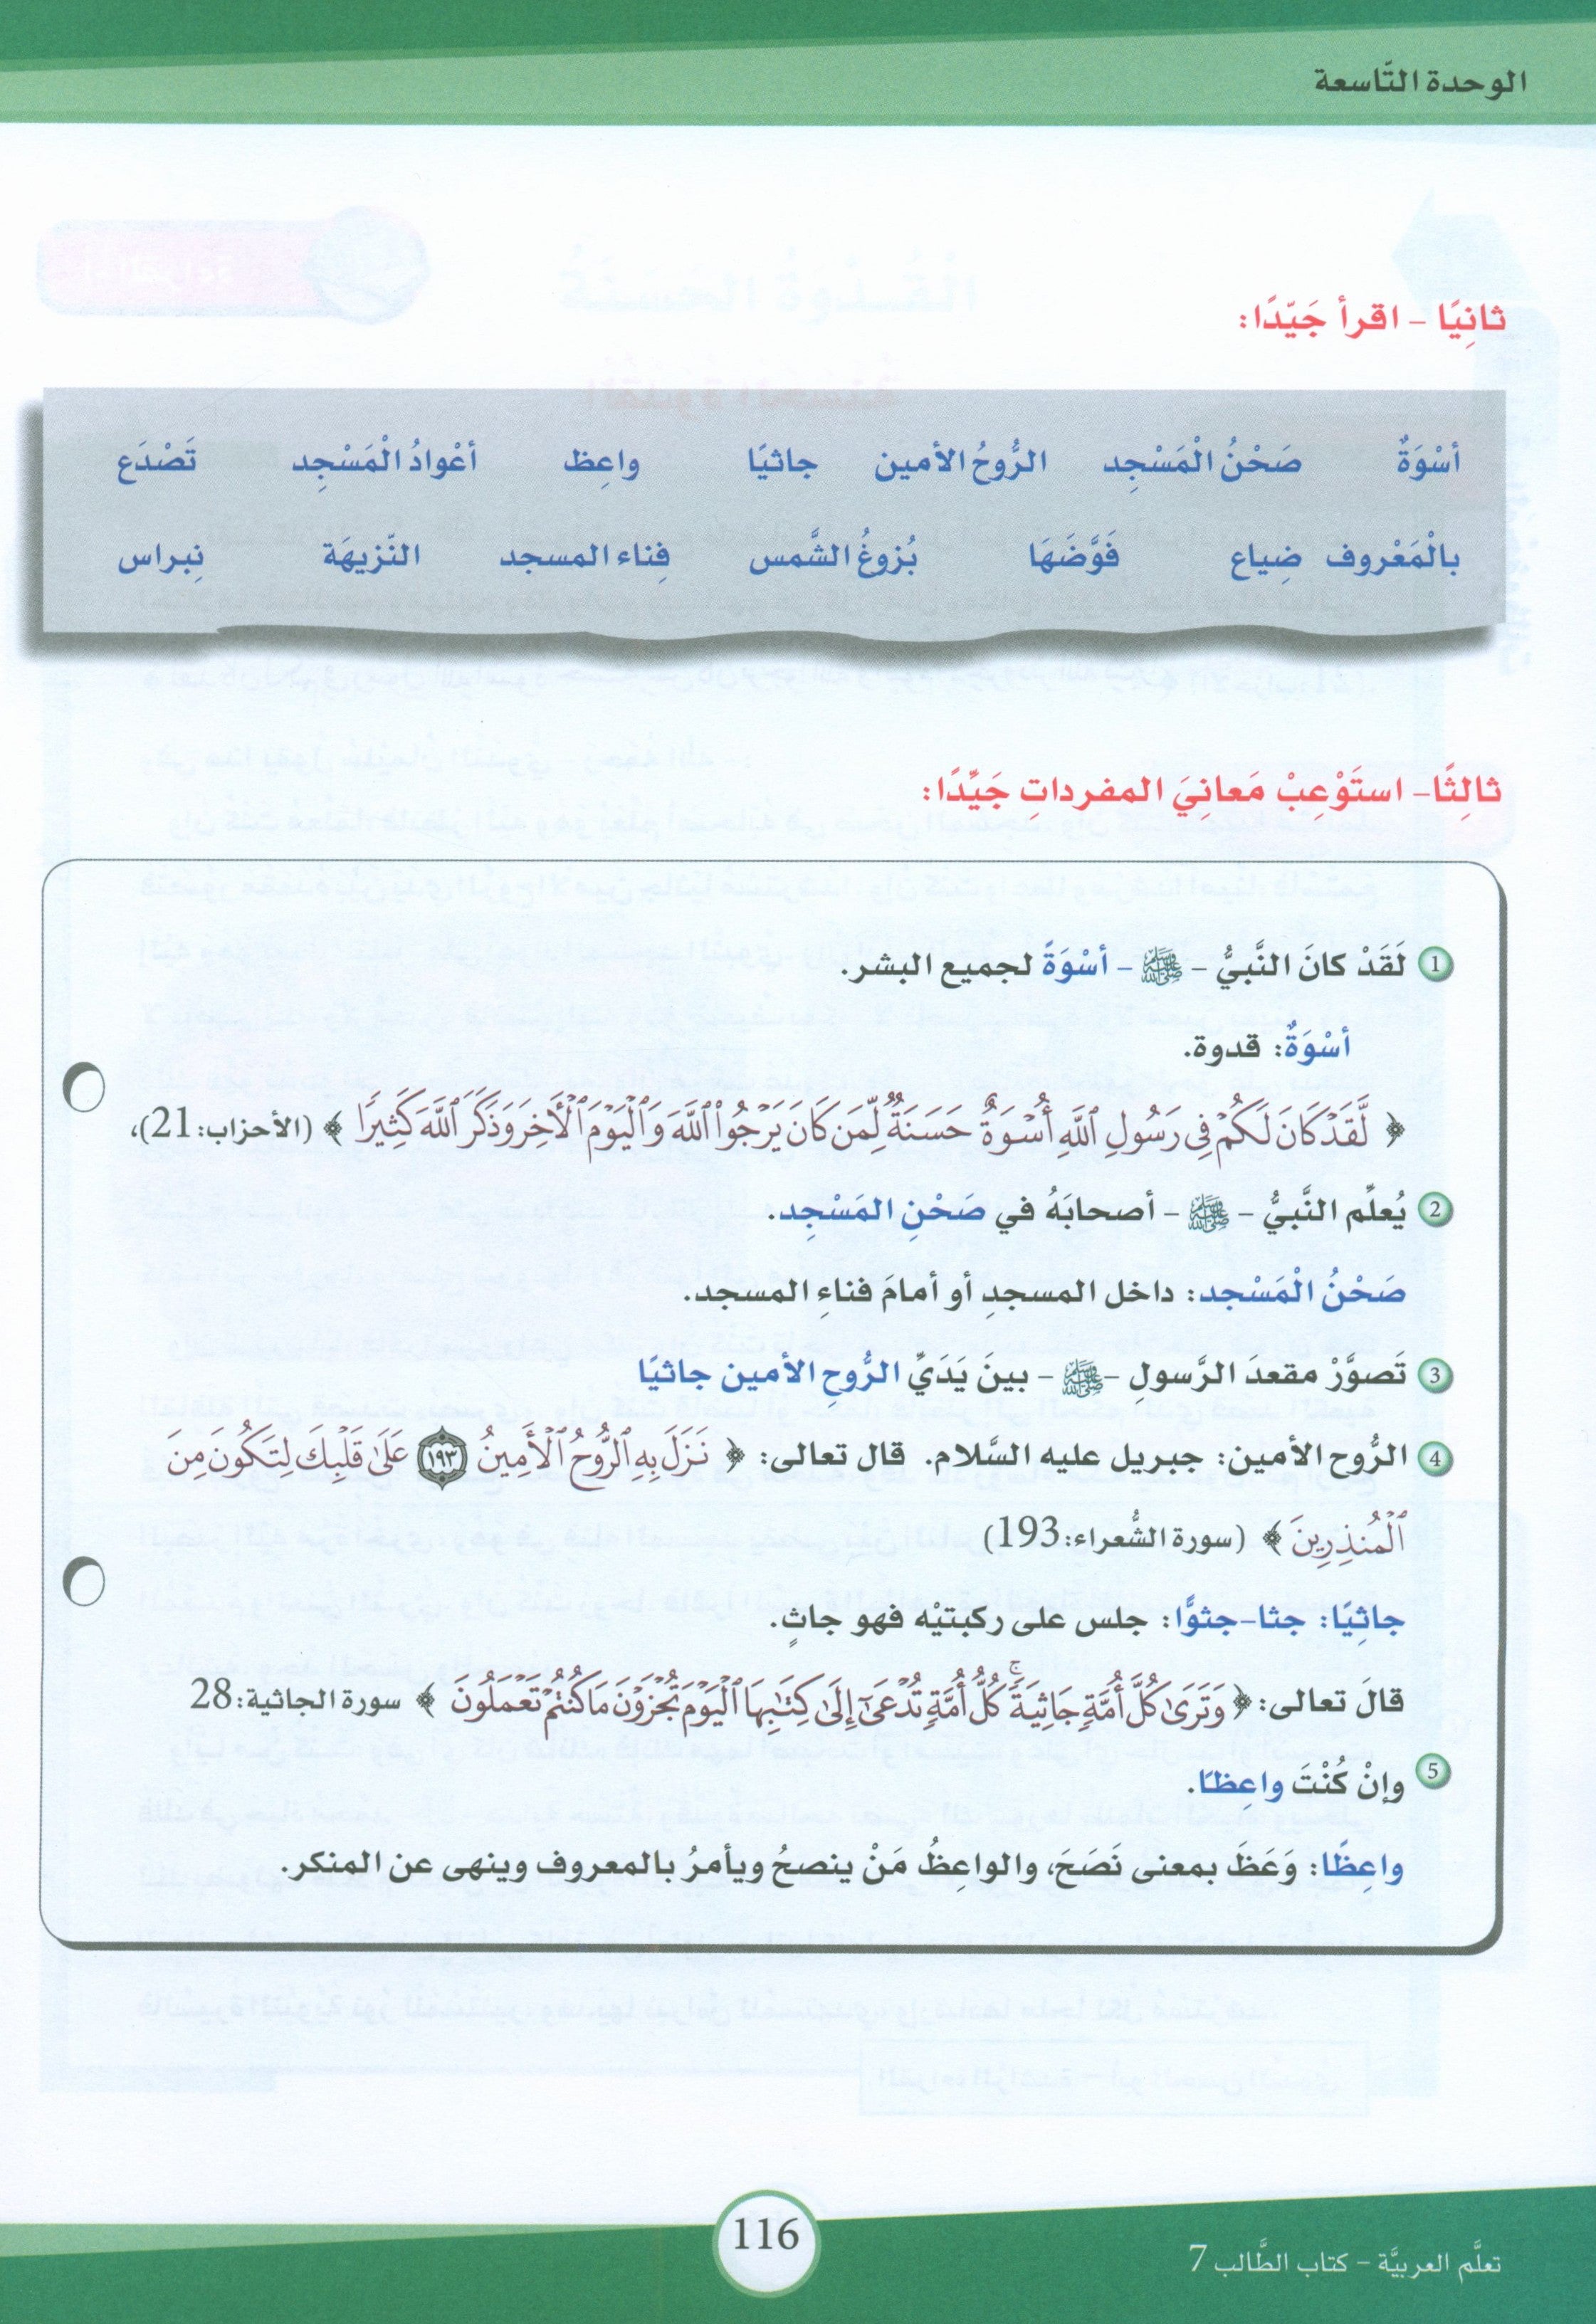 الوحدة التّاسعة
ثانِيًا - اقرأ جَيّدًا:
أسْوَةٌ صَحْنُ الْمَسْجِد الرُّوحُ الأمين جاثيًا واعِظ أعْوادُ الْمَسْجِد تَصْدَع
بالْمَعْروف ضِياع فَوَّضَهَا بُزوغُ الشَّمس فِناء المسجد النّزيهَة نِبراس
ثالِثًا- استَوْعِبْ مَعانِيَ المفرداتِ جَيِّدًا:
1 لَقَدْ كانَ النَّبيُّ - ﷺ - أسْوَةً لجميع البشر.
أسْوَةٌ: قدوة.
﴿ لَّقَدْ كَانَ لَكُمْ فِى رَسُولِ ٱللَّهِ أُسْوَةٌ حَسَنَةٌ لِّمَن كَانَ يَرْجُوا۟ ٱللَّهَ وَٱلْيَوْمَ ٱلْأَخِرَ وَذَكَرَ ٱللَّهَ كَثِيرًا ﴾ (الأحزاب: 21)،
2 يُعلِّم النَّبيُّ - ﷺ - أصحابَهُ في صَحْنِ المَسْجِد.
صَحْنُ الْمَسْجد: داخل المسجدِ أو أمامَ فناءِ المسجد.
3 تَصوَّرْ مقعدَ الرَّسولِ - ﷺ - بينَ يَدَيِّ الرُّوحِ الأمين جاثيًا
4 الرُّوح الأمين: جبريل عليه السَّلام. قال تعالى: ﴿ نَزَلَ بِهِ ٱلرُّوحُ ٱلْأَمِينُ ١٩٣ عَلَىٰ قَلْبِكَ لِتَكُونَ مِنَ
ٱلْمُنذِرِينَ ﴾ (سورة الشُّعراء: 193)
جاثِيًا: جثا-جثوًّا: جلس على ركبتيْه فهو جاثٍ.
قالَ تعالى: ﴿ وَتَرَىٰ كُلَّ أُمَّةٍ جَاثِيَةً ۚ كُلُّ أُمَّةٍ تُدْعَىٰٓ إِلَىٰ كِتَٰبِهَا ٱلْيَوْمَ تُجْزَوْنَ مَا كُنتُمْ تَعْمَلُونَ ﴾ سورة الجاثية: 28
5 وإنْ كُنْتَ واعِظًا.
واعِظًا: وَعَظَ بمعنى نَصَحَ، والواعِظُ مَنْ ينصحُ ويأمرُ بالمعروف وينهى عن المنكر.
116
تعلَّم العربيَّة - كتاب الطَّالب 7